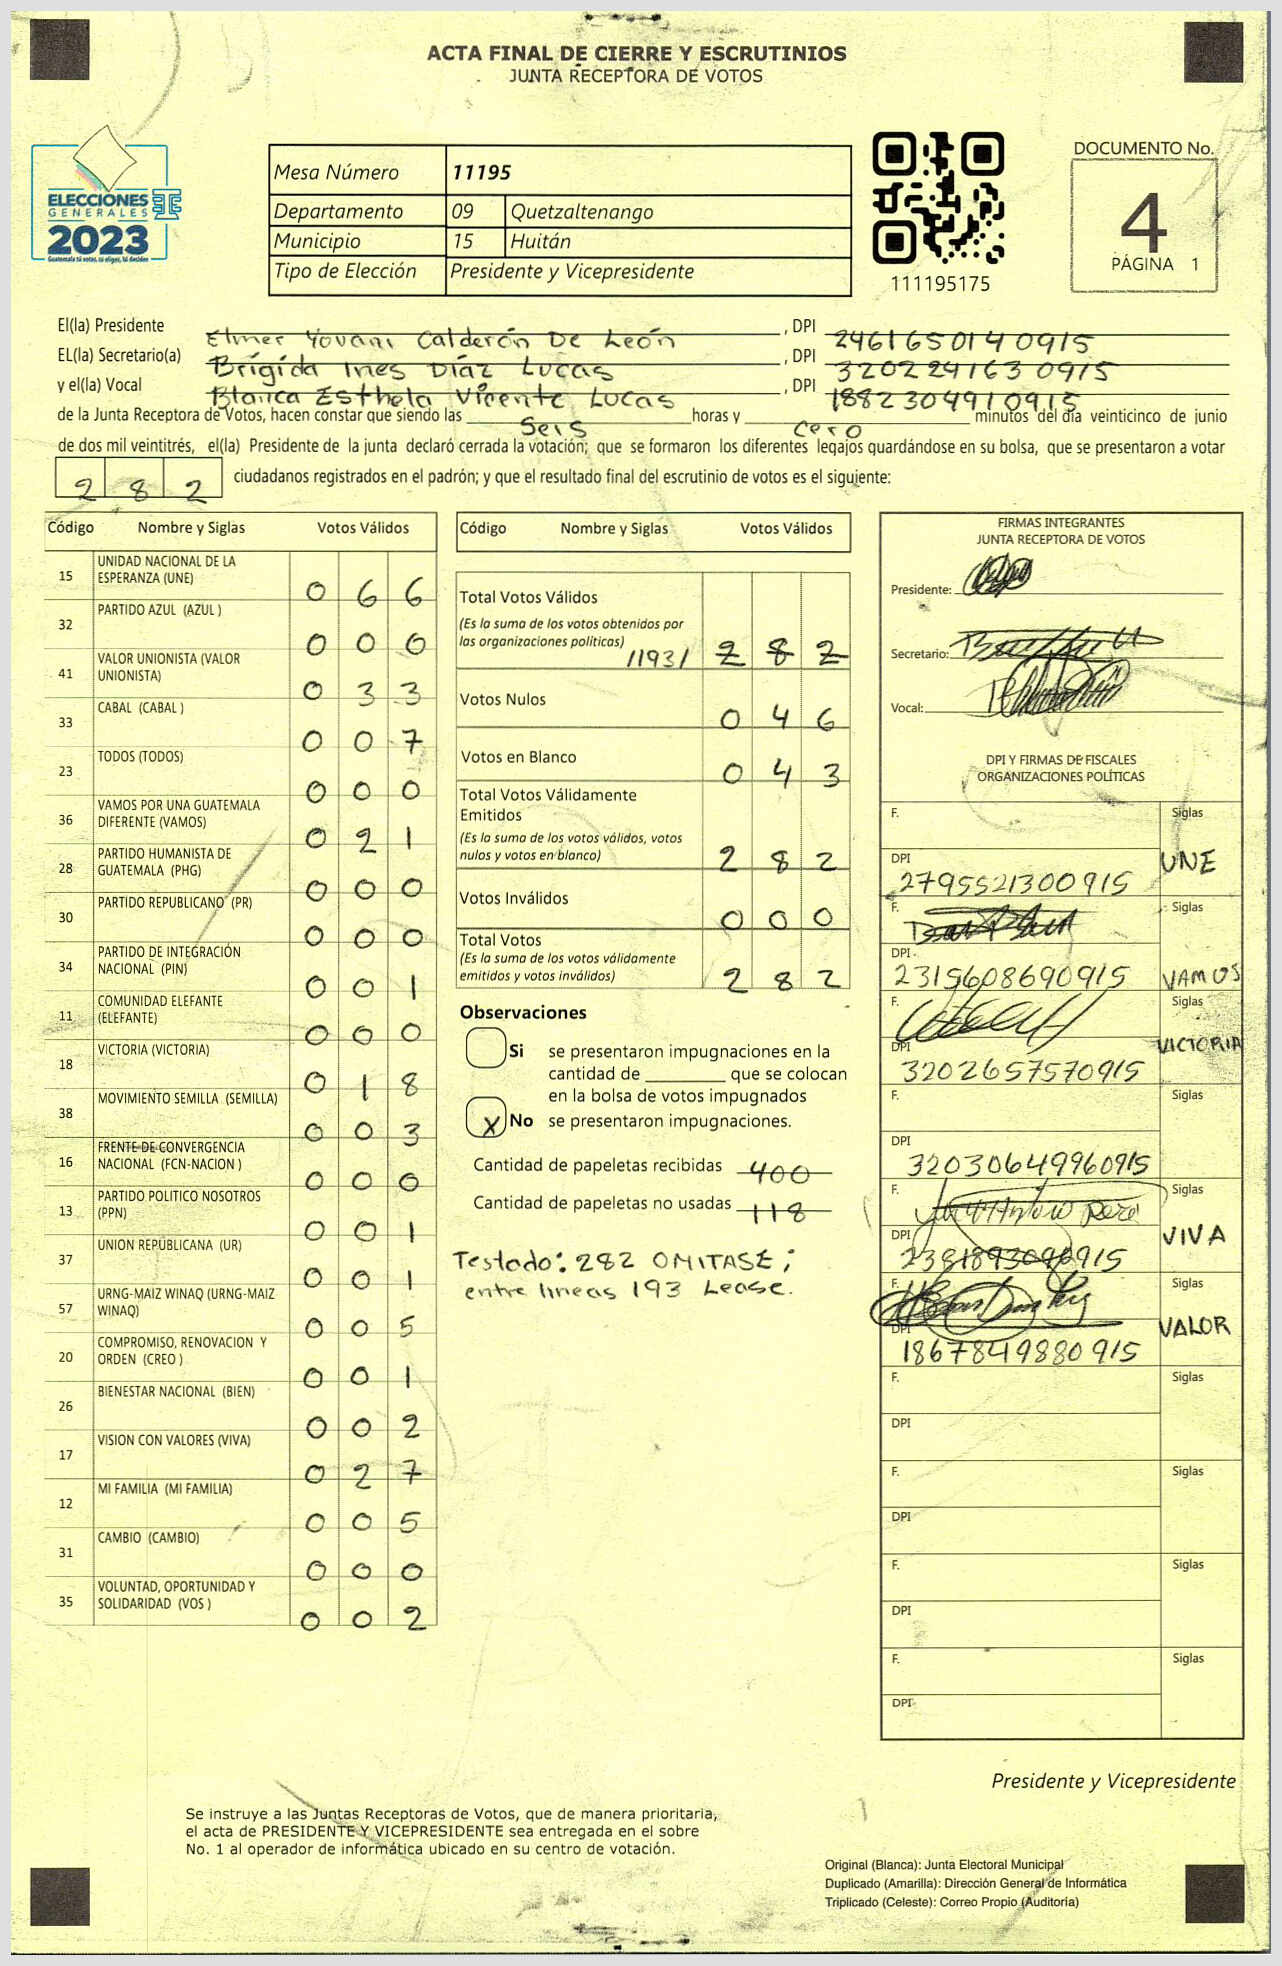 ACTA FINAL DE CIERRE Y ESCRUTINIOS
JUNTA RECEPTORA DE VOTOS
ELECCIONES
GENERALES
2023
Guatemala tú votas, tú eliges, tú decides
Mesa Número 11195
Departamento 09 Quetzaltenango
Municipio 15 Huitán
Tipo de Elección Presidente y Vicepresidente
111195175
DOCUMENTO No.
4
PÁGINA 1
El(la) Presidente Elmer Yovani Calderón De León , DPI 2461650140915
EL(la) Secretario(a) Brígida Ines Díaz Lucas , DPI 3202241630915
y el(la) Vocal Blanca Esthela Vicente Lucas , DPI 1882304910915
de la Junta Receptora de Votos, hacen constar que siendo las Seis horas y cero minutos del día veinticinco de junio
de dos mil veintitrés, el(la) Presidente de la junta declaró cerrada la votación; que se formaron los diferentes legajos guardándose en su bolsa, que se presentaron a votar
282 ciudadanos registrados en el padrón; y que el resultado final del escrutinio de votos es el siguiente:
Código Nombre y Siglas Votos Válidos
15 UNIDAD NACIONAL DE LA
ESPERANZA (UNE) 066
32 PARTIDO AZUL (AZUL ) 000
41 VALOR UNIONISTA (VALOR
UNIONISTA) 033
33 CABAL (CABAL ) 007
23 TODOS (TODOS) 000
36 VAMOS POR UNA GUATEMALA
DIFERENTE (VAMOS) 021
28 PARTIDO HUMANISTA DE
GUATEMALA (PHG) 000
30 PARTIDO REPUBLICANO (PR) 000
34 PARTIDO DE INTEGRACIÓN
NACIONAL (PIN) 001
11 COMUNIDAD ELEFANTE
(ELEFANTE) 000
18 VICTORIA (VICTORIA) 018
38 MOVIMIENTO SEMILLA (SEMILLA) 003
16 FRENTE DE CONVERGENCIA
NACIONAL (FCN-NACION ) 000
13 PARTIDO POLITICO NOSOTROS
(PPN) 001
37 UNION REPUBLICANA (UR) 001
57 URNG-MAIZ WINAQ (URNG-MAIZ
WINAQ) 005
20 COMPROMISO, RENOVACION Y
ORDEN (CREO ) 001
26 BIENESTAR NACIONAL (BIEN) 002
17 VISION CON VALORES (VIVA) 027
12 MI FAMILIA (MI FAMILIA) 005
31 CAMBIO (CAMBIO) 000
35 VOLUNTAD, OPORTUNIDAD Y
SOLIDARIDAD (VOS ) 002
Código Nombre y Siglas Votos Válidos
Total Votos Válidos
(Es la suma de los votos obtenidos por
las organizaciones políticas) /193/ 282
Votos Nulos 046
Votos en Blanco 043
Total Votos Válidamente
Emitidos
(Es la suma de los votos válidos, votos
nulos y votos en blanco) 282
Votos Inválidos 000
Total Votos
(Es la suma de los votos válidamente
emitidos y votos inválidos) 282
Observaciones
Si se presentaron impugnaciones en la
cantidad de ________ que se colocan
en la bolsa de votos impugnados
X No se presentaron impugnaciones.
Cantidad de papeletas recibidas 400
Cantidad de papeletas no usadas 118
Testado: 282 OMITASE;
entre lineas 193 Lease.
FIRMAS INTEGRANTES
JUNTA RECEPTORA DE VOTOS
Presidente:
Secretario:
Vocal:
DPI Y FIRMAS DE FISCALES
ORGANIZACIONES POLÍTICAS
F. Siglas
DPI UNE
2795521300915
F. Siglas
DPI
2315608690915 VAMOS
F. Siglas
DPI VICTORIA
3202657570915
F. Siglas
DPI
32030649960915
F. Siglas
DPI VIVA
2381893090915
F. Siglas
DPI VALOR
1867849880915
F. Siglas
DPI
F. Siglas
DPI
F. Siglas
DPI
F. Siglas
DPI
Presidente y Vicepresidente
Se instruye a las Juntas Receptoras de Votos, que de manera prioritaria,
el acta de PRESIDENTE Y VICEPRESIDENTE sea entregada en el sobre
No. 1 al operador de informática ubicado en su centro de votación.
Original (Blanca): Junta Electoral Municipal
Duplicado (Amarilla): Dirección General de Informática
Triplicado (Celeste): Correo Propio (Auditoría)